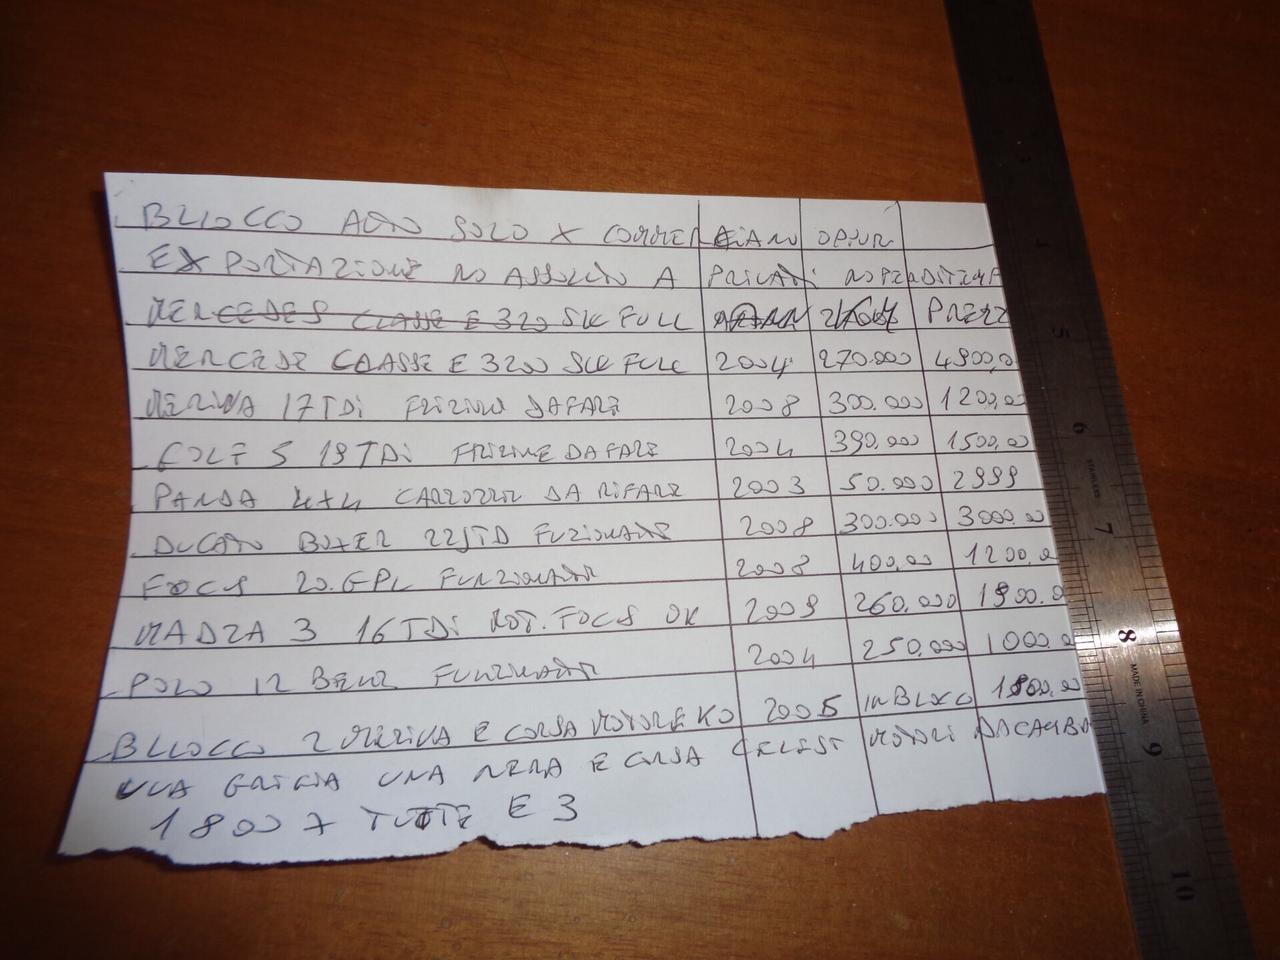 BLLOCCO AUTO SOLO X COMMERCIANO OPPUR
EXPORTAZIONE NO ASSOLUTO A PRIVATI NO PERDITEMP
MERCEDES CLASSE E 320 SW FULL PREZZ
MERCEDE CLASSE E 320 SW FULL 2004 270.000 4900,0
MERIVA 17 TDI FRIZIONE DA FARE 2008 300.000 1200,00
GOLF 5 19 TDI FRIZIONE DA FARE 2004 390.000 1500,00
PANDA 4X4 CARROZZER DA RIFARE 2003 50.000 2999
DUCATO BOXER 22JTD FUZIONANTE 2008 300.000 3000.00
FOCUS 20.GPL FUNZIONANTE 2008 400,00 1200,0
MADZA 3 16 TDI MOT. FOCUS OK 2009 260,000 1900.0
POLO 12 BENZ FUNZIONANTE 2004 250,000 1000.0
BLLOCCO 2 MERIVA E CORSA MOTORE KO 2005 IN BLOCO 1800,00
UNA GRIGIA UNA NERA E CORSA CELEST MOTORI DA CAMBIA
1800 X TUTTE E 3
1
3
5
6
STAINLESS
7
8
MADE IN CHINA
9
10